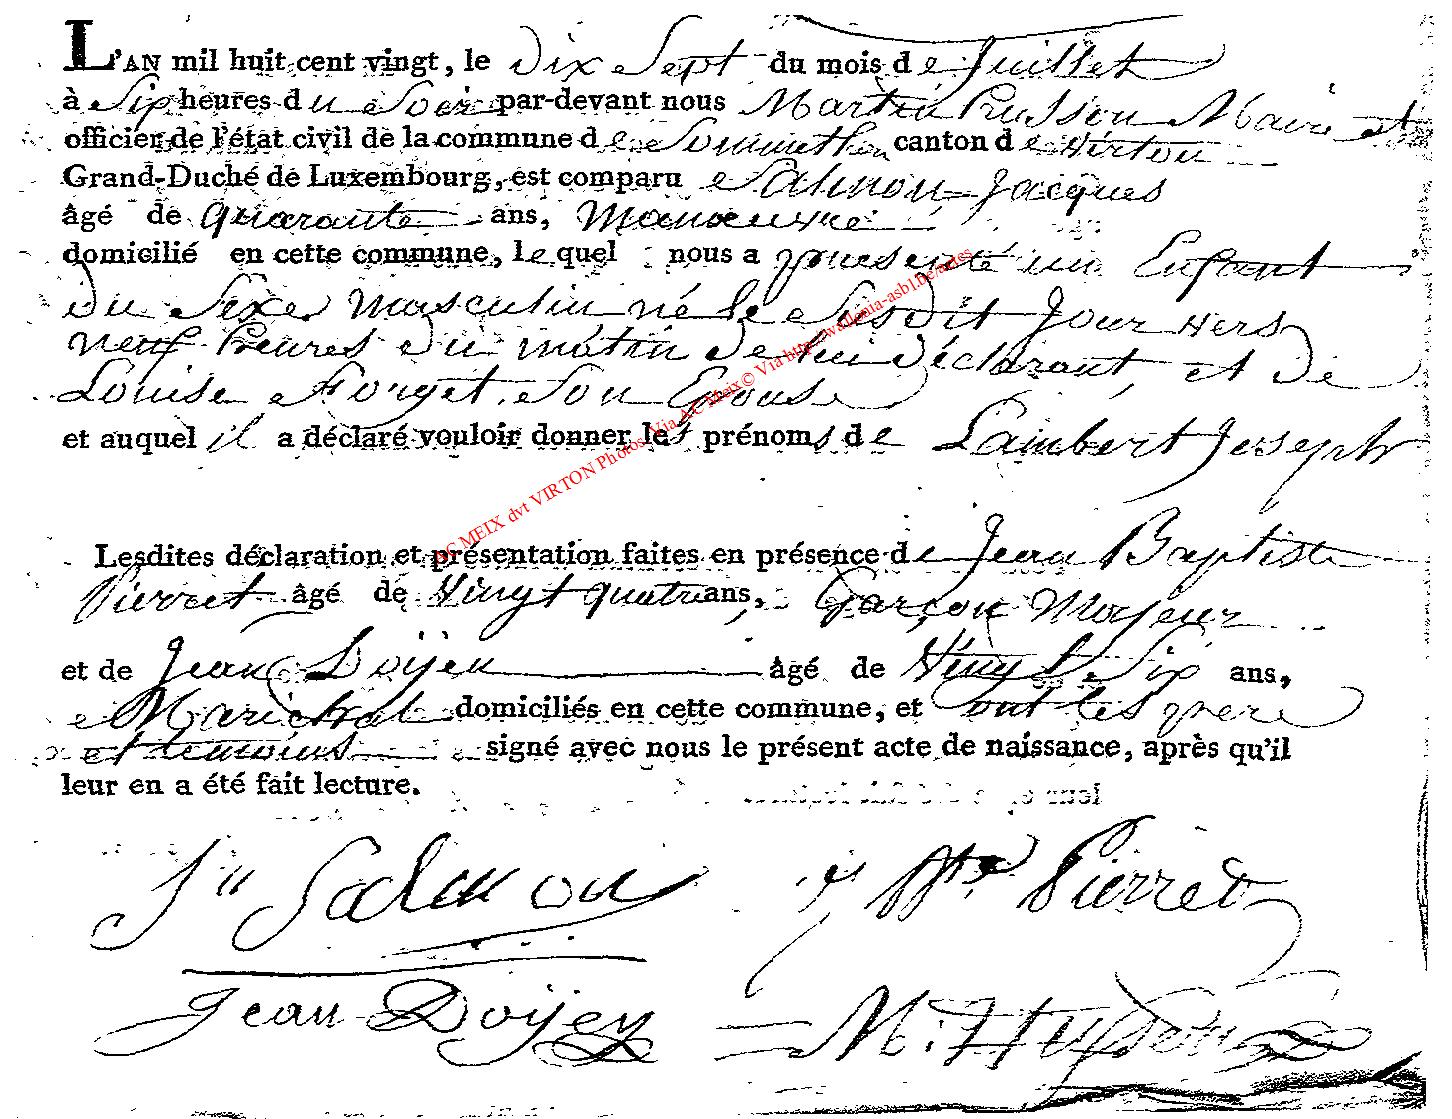 L'AN mil huit cent vingt, le dix Sept du mois de Juillet
à Six heures du Soir par-devant nous Martin husson Maire et
officier de l'état civil de la commune de Sommethon canton de Virton
Grand-Duché de Luxembourg, est comparu Salmon Jacques
âgé de quarante ans, Manœuvre
domicilié en cette commune, lequel nous a presenté un Enfant
du Sexe Masculin né le Susdit Jour vers
neuf heures du matin de lui déclarant, et de
Louise Forget Son Epouse
et auquel il a déclaré vouloir donner les prénoms de Lambert Joseph
AC MEIX dvt VIRTON Photos Via AC Meix© Via http://wallonia-asbl.be/actes
Lesdites déclaration et présentation faites en présence de Jean Baptiste
Pierret âgé de Vingt quatre ans, Garçon Majeur
et de Jean Doÿen âgé de Vingt Six ans,
Marichal domiciliés en cette commune, et ont les pere
et temoins signé avec nous le présent acte de naissance, après qu'il
leur en a été fait lecture.
Salmon
Bte Pierret
Jean Doÿen
M. Husson